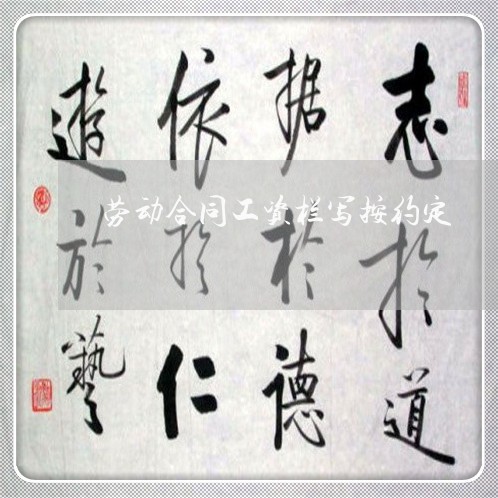 志於道
据於德
依於仁
遊於藝
劳动合同工资栏写按约定